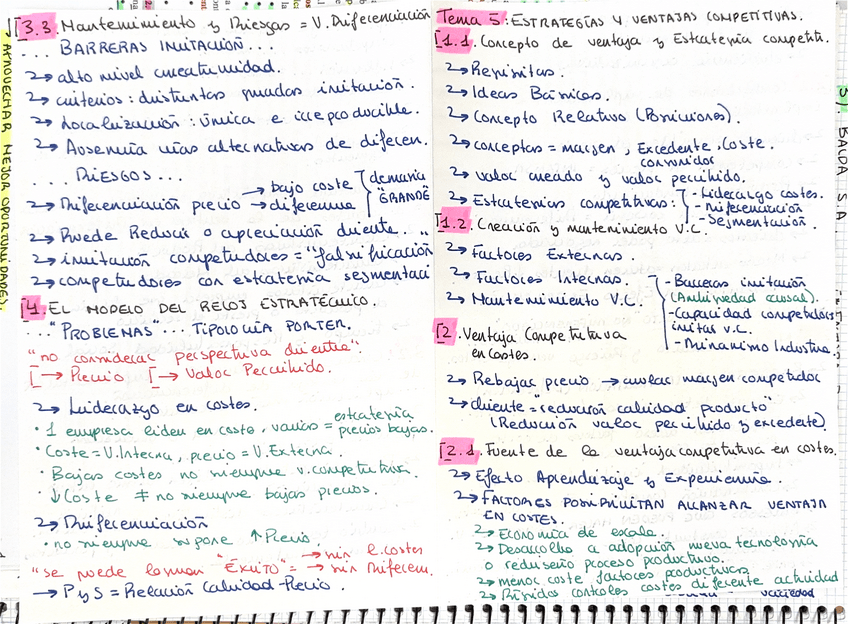 [3.3. Mantenimiento y Riesgos = V. Diferenciación
... BARRERAS IMITACIÓN ...
→ alto nivel creatividad.
→ criterios: distintas imitación.
→ Localización: única e irreproducible.
→ Ausencia vías alternativas de diferen.
... RIESGOS ...
→ Diferenciación precio → bajo coste → diferencia } demasia "GRANDE"
→ Puede Reducir o apreciación cliente.
→ imitación competidores = "falsificación
→ competidores con estrategia segmentaci
[4. EL MODELO DEL RELOJ ESTRATÉGICO.
... "PROBLEMAS" ... TIPOLOGÍA PORTER.
"no considerar perspectiva cliente".
[→ Precio [→ Valor Percibido.
→ Liderazgo en costes.
· 1 empresa líder en coste, varios = estrategia precios bajos.
· Coste = V. Interna, precio = V. Externa.
· Bajos costes no siempre v. competitiva.
· ↓Coste ≠ no siempre bajos precios.
→ Diferenciación
· no siempre supone ↑ Precio.
"se puede lograr "ÉXITO" = → sin l. costes
→ sin Diferen.
→ P y S = Relación Calidad-Precio.
APROVECHAR MEJOR OPORTUNIDADES).
Tema 5: ESTRATEGIAS Y VENTAJAS COMPETITIVAS.
[1.1. Concepto de ventaja y Estrategia competiti.
→ Requisitos.
→ Ideas Básicas.
→ Concepto Relativo (Posiciones).
→ conceptos = margen, Excedente consumidor, Coste.
→ valor creado y valor percibido.
→ Estrategias competitivas: - Liderazgo costes.
- Diferenciación
- Segmentación.
[1.2. Creación y mantenimiento V.C.
→ Factores Externos.
→ Factores Internos.
→ Mantenimiento V.C. - Barreras imitación
(Ambigüedad causal).
- Capacidad competidores
imitar v.c.
- Dinamismo Industria
[2. Ventaja Competitiva
en Costes.
→ Rebajar precio → margen competidor
→ cliente = "reducción calidad producto"
(Reducción valor percibido y excedente)
[2.1. Fuente de la ventaja competitiva en costes.
→ Efecto Aprendizaje y Experiencia.
→ FACTORES POSIBILITAN ALCANZAR VENTAJA
EN COSTES.
→ Economía de escala.
→ Desarrollo o adopción nueva tecnología
o rediseño proceso productivo.
→ menor coste factores productivos
→ Rígidos controles costes diferente actividad
variedad
BALDA S.A.